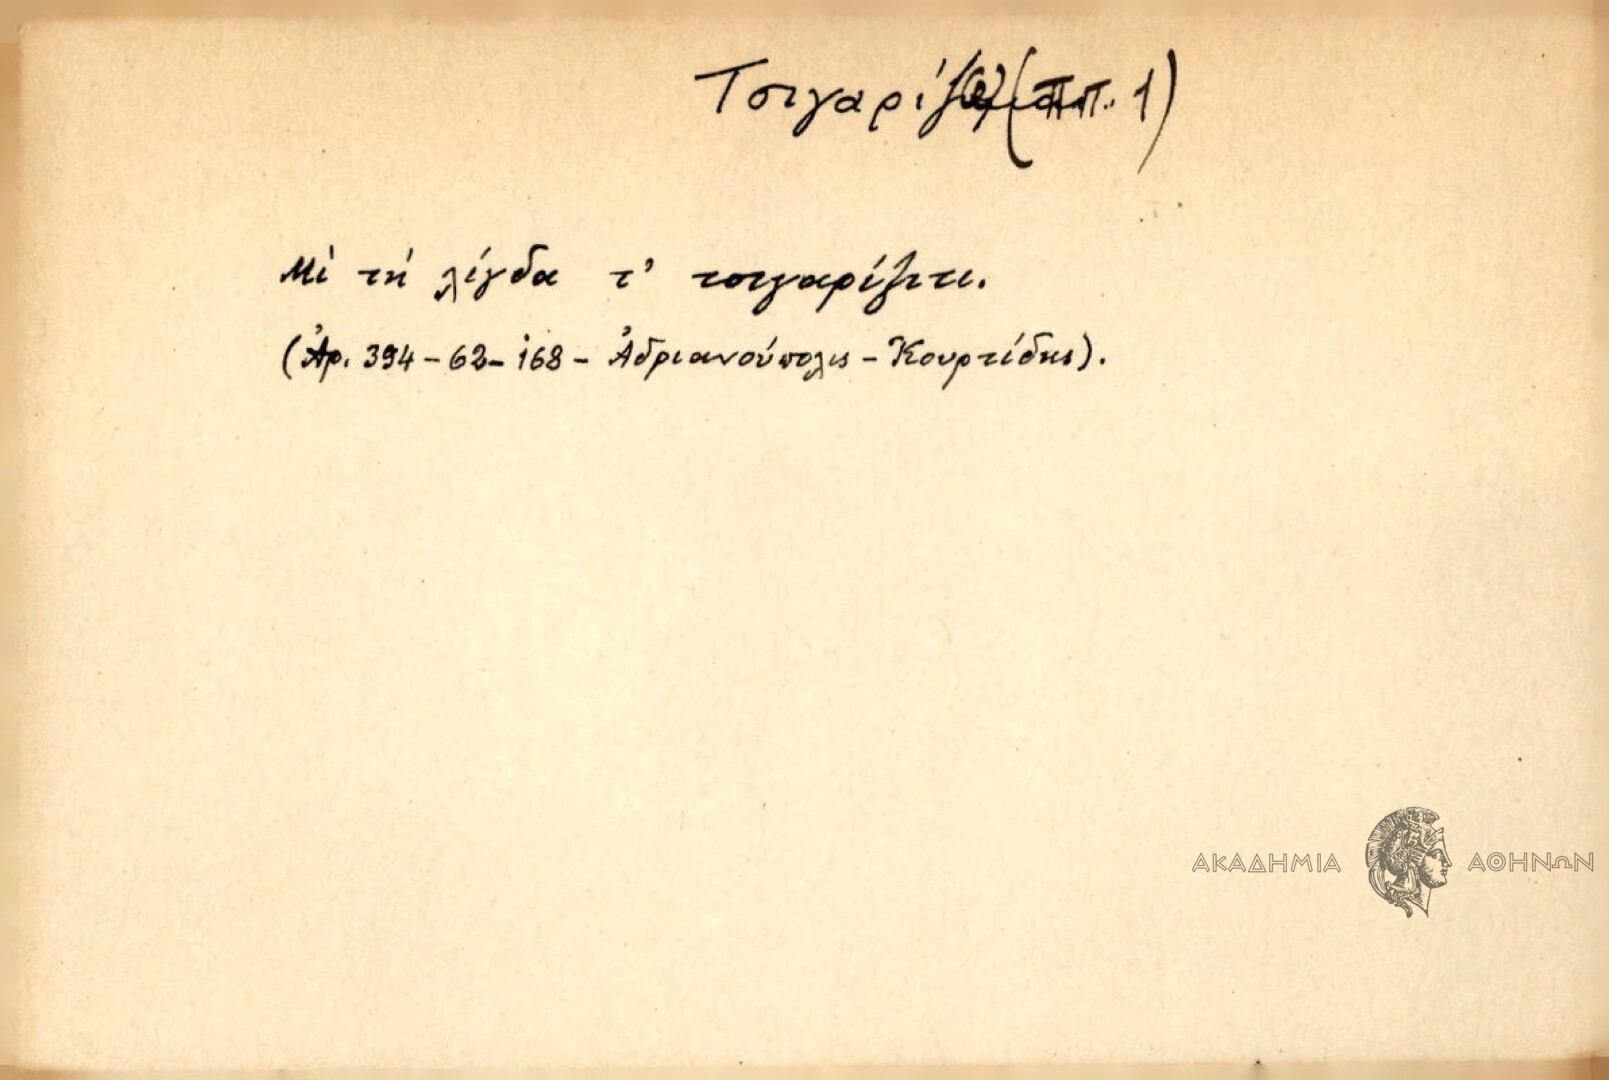 Τσιγαρίζω (ππ. 1)
Μὲ τὴ λίγδα τ' τσιγαρίζιτι.
(Ἀρ. 394 - 62 - 168 - Ἀδριανούπολις - Κουρτίδης).
ΑΚΑΔΗΜΙΑ ΑΘΗΝΩΝ